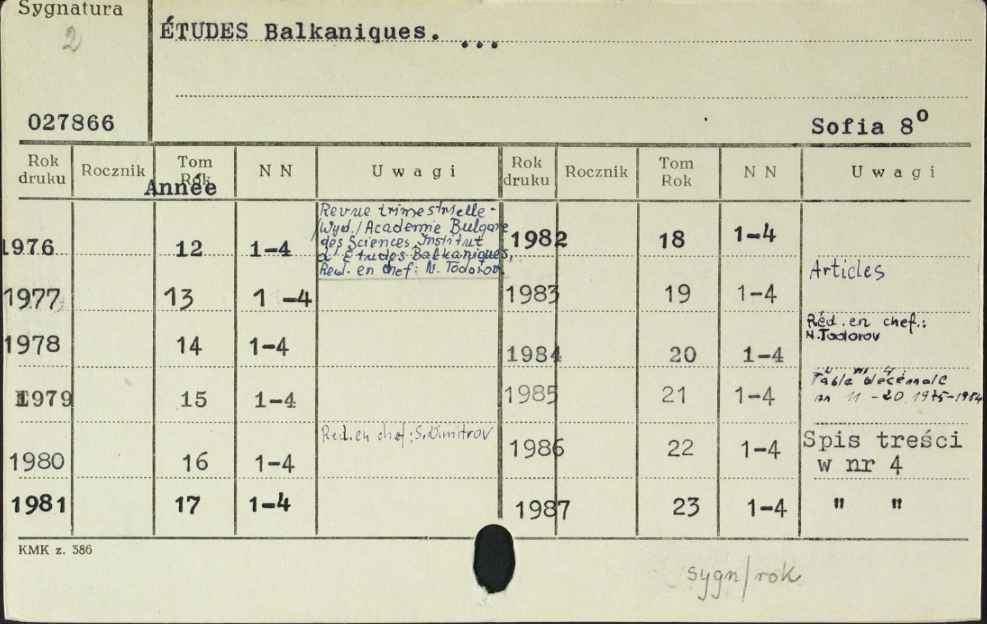 Sygnatura
2
ÉTUDES Balkaniques. ...
027866
Sofia 8º
Rok druku Rocznik Tom Rok N N Uwagi Rok druku Rocznik Tom Rok N N Uwagi
Année
1976 12 1-4
Revue trimestrielle -
/Wyd./ Academie Bulgare
des Sciences Institut
d'Études Balkaniques,
Red. en chef: N. Todorov.
1982 18 1-4
1977 13 1-4
1983 19 1-4 Articles
1978 14 1-4
1984 20 1-4
Réd. en chef.:
N. Todorov
1979 15 1-4
1985 21 1-4
Table décénale
nn 11-20 1975-1984
1980 16 1-4 Red. en chef: S. Dimitrov
1986 22 1-4
Spis treści
w nr 4
1981 17 1-4
1987 23 1-4 " "
KMK z. 386
sygn/rok